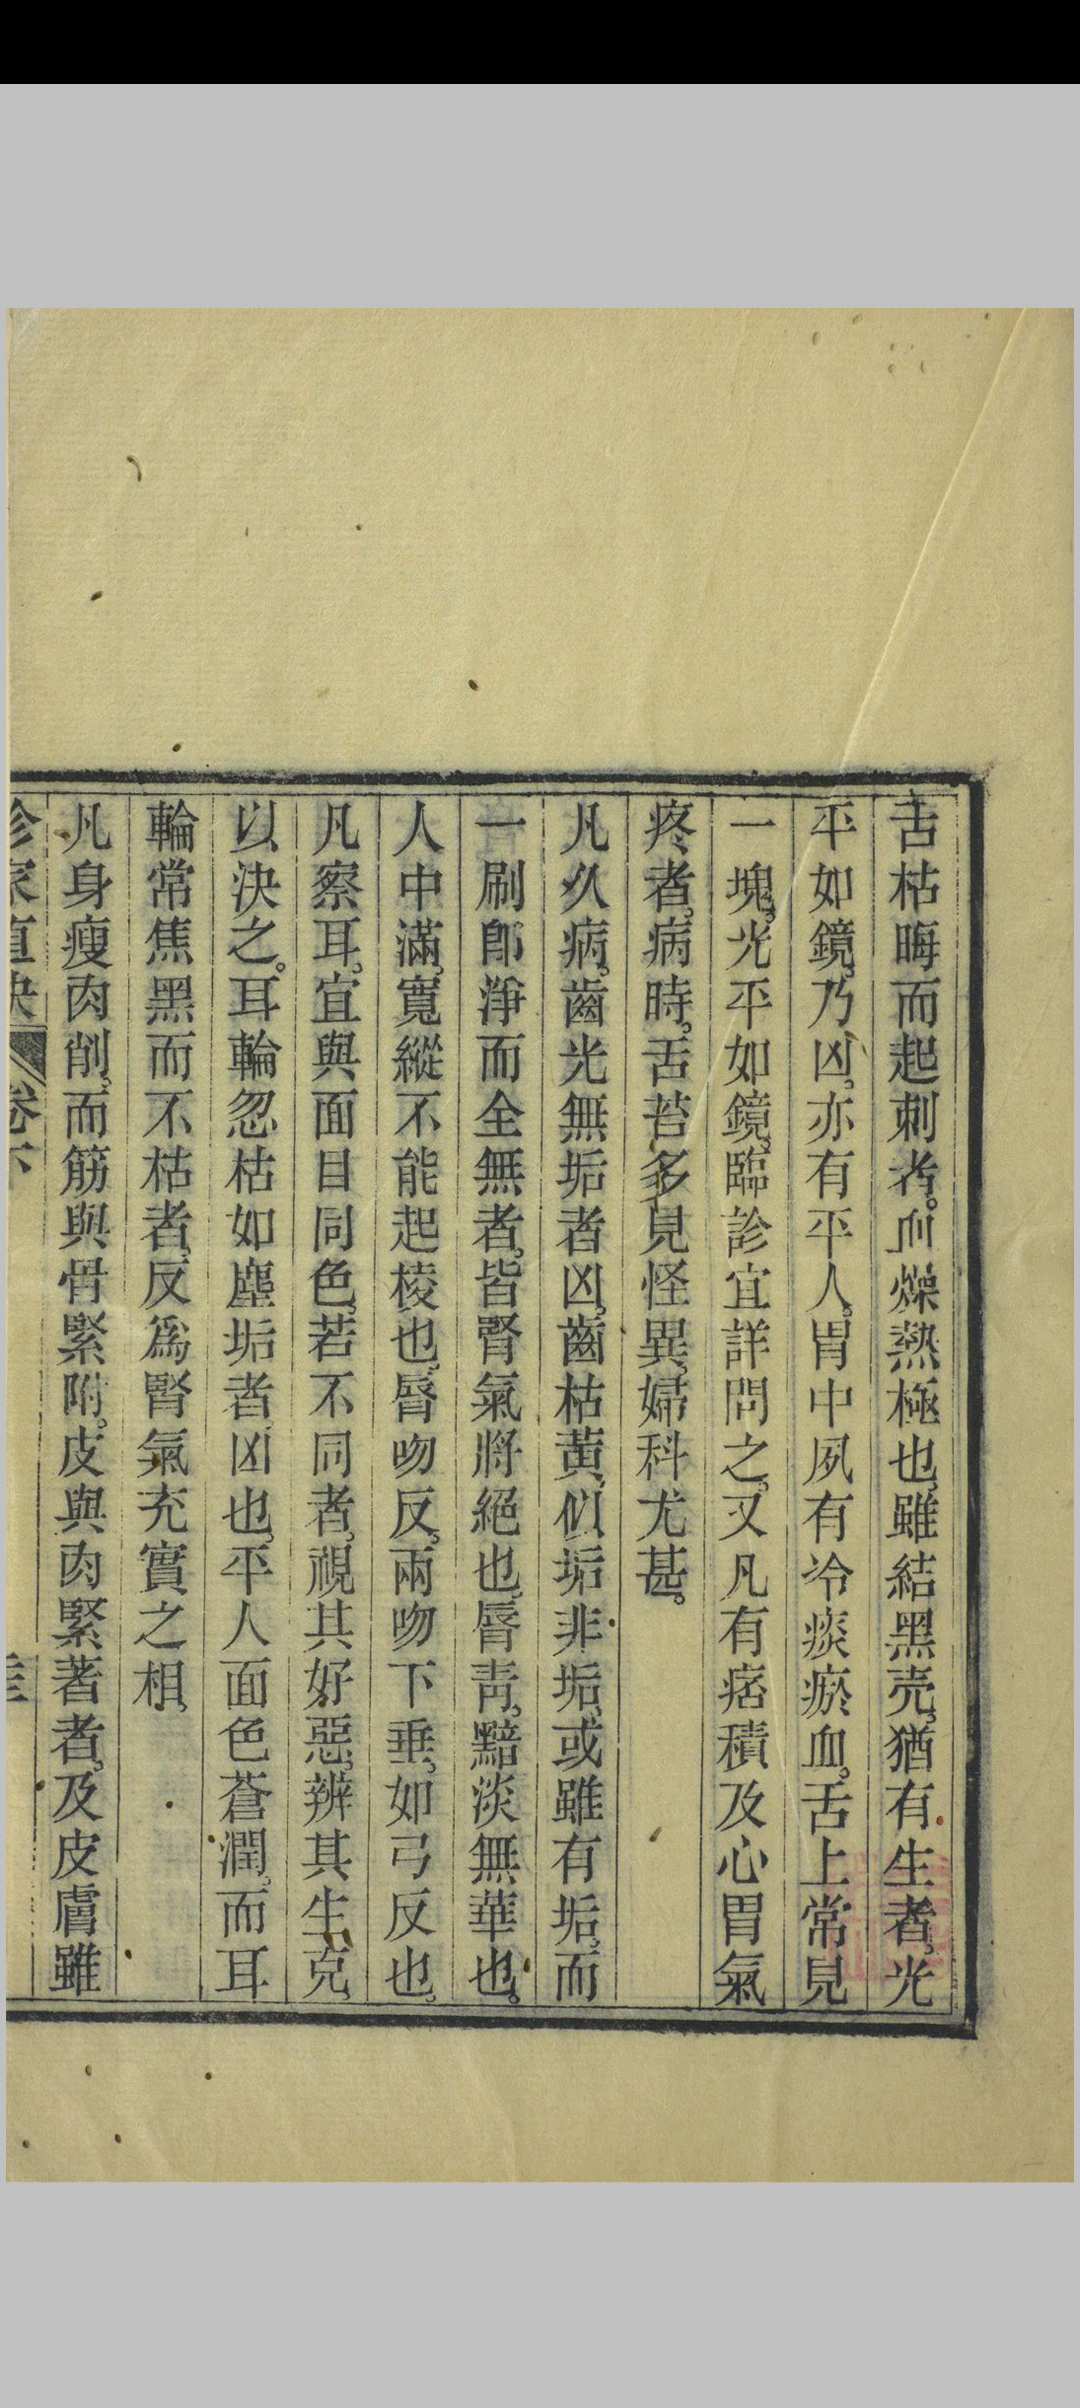 舌枯晦而起刺者。血燥熱極也。雖結黑壳。猶有生者。光
平如鏡。乃凶。亦有平人。胃中夙有冷痰瘀血。舌上常見
一塊。光平如鏡。臨診宜詳問之。又凡有痞積及心胃氣
疼者。病時。舌苔多見怪異。婦科尤甚。
凡久病。齒光無垢者凶。齒枯黃。似垢非垢。或雖有垢。而
一刷卽淨而全無者。皆腎氣將絕也。脣靑。黯淡無華也。
人中滿。寬縱不能起棱也。脣吻反。兩吻下垂。如弓反也。
凡察耳。宜與面目同色。若不同者。視其好惡。辨其生克
以決之。耳輪忽枯如塵垢者凶也。平人面色蒼潤。而耳
輪常焦黑而不枯者。反爲腎氣充實之相。
凡身瘦肉削。而筋與骨緊附。皮與肉緊著者。及皮膚雖
診家直訣 卷下